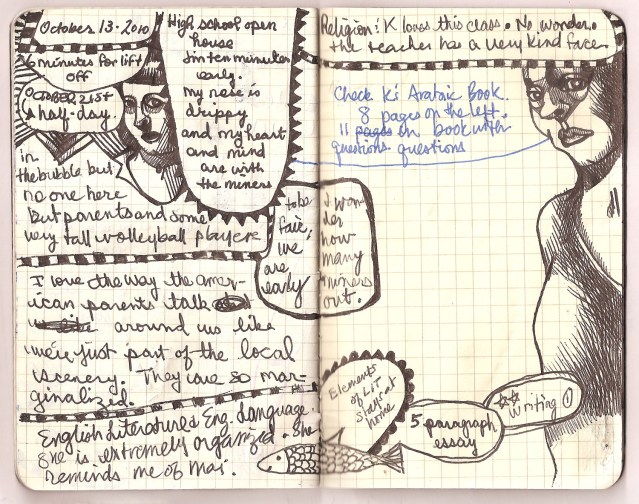 October 13. 2010
6 minutes for lift
off
OCTOBER 21st
a half-day.
High school open
house
I'm ten minutes
early.
my nose is
drippy
and my heart
and mind
are with
the miners
in
the bubble but
no one here
but parents and some
very tall volleyball players
to be
fair,
we
are
early
I won-
der
how
many
miners
out.
I love the way the amer-
ican parents talk
around us like
we're just part of the local
scenery. They are so mar-
ginalized.
English Literature & Eng. Language.
She is extremely organized. She
reminds me of Mai.
Religion: K loves this class. No wonder.
the teacher has a very kind face.
Check K's Arabic Book.
8 pages on the left.
11 pages on book with
questions questions
Elements
of Lit
Stays at
home
5 paragraph
essay
Writing